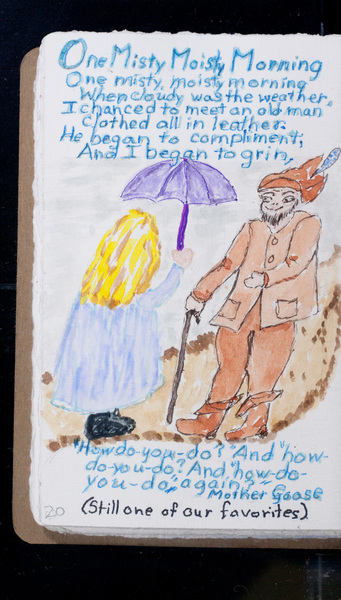 One Misty Moisty Morning
One misty, moisty morning
When cloudy was the weather,
I chanced to meet an old man
Clothed all in leather.
He began to compliment,
And I began to grin,
"How do-you-do?" "And "how-
do-you-do? And, "how-do-
you-do," again?"
Mother Goose
20 (Still one of our favorites).